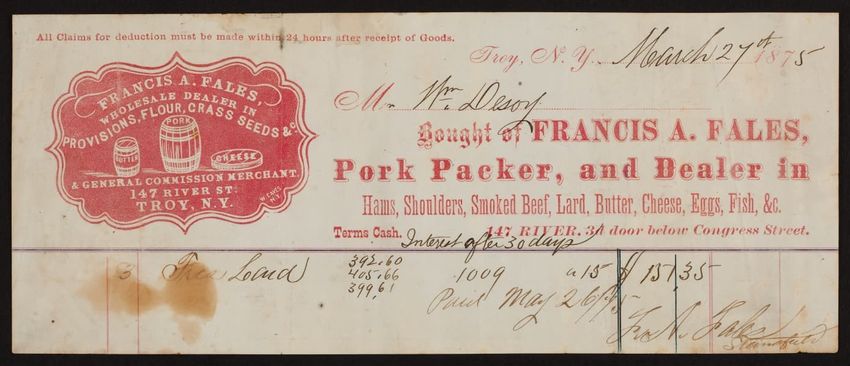 All Claims for deduction must be made within 24 hours after receipt of Goods.
Troy, N. Y. March 27th 1875
FRANCIS A. FALES,
WHOLESALE DEALER IN
PROVISIONS, FLOUR, GRASS SEEDS &c
PORK
BUTTER
CHEESE
& GENERAL COMMISSION MERCHANT.
147 RIVER ST.
TROY, N.Y.
Mr Wm. Desoy
Bought of FRANCIS A. FALES,
Pork Packer, and Dealer in
Hams, Shoulders, Smoked Beef, Lard, Butter, Cheese, Eggs, Fish, &c.
Terms Cash. 147 RIVER. 3d door below Congress Street.
Interest after 30 days
3 Lard 392.60 1009 a 15 $ 151 35
405.66
399,61
Paid May 26
F. A. Fales